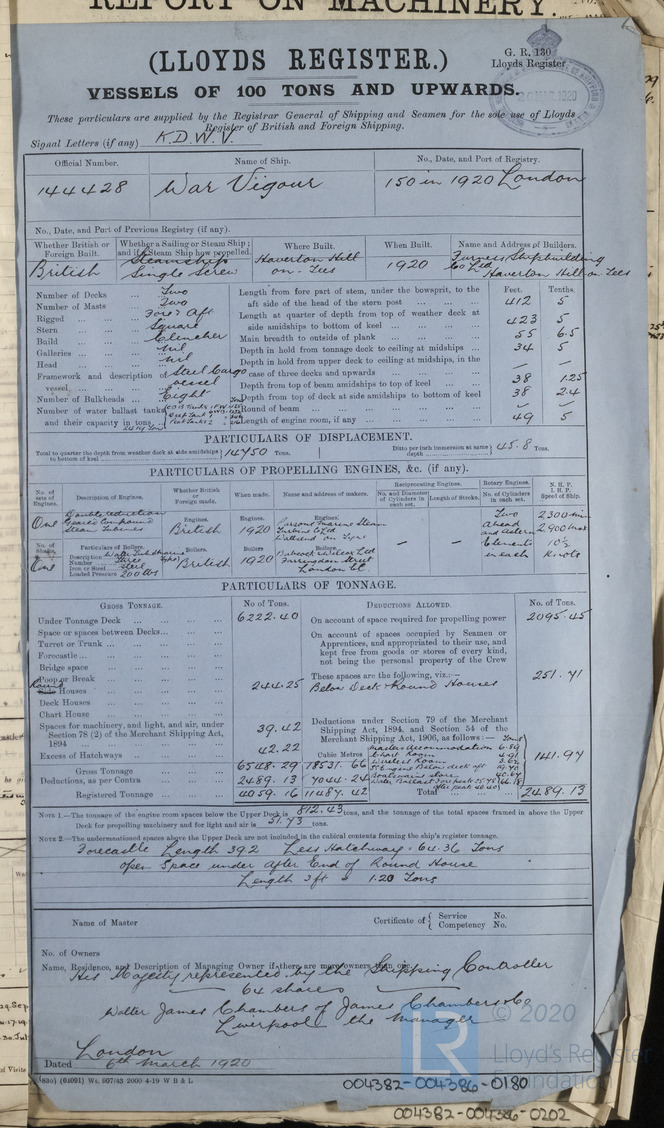 REPORT ON MACHINERY.
(LLOYDS REGISTER.)
G. R. 130
Lloyds Register
VESSELS OF 100 TONS AND UPWARDS.
These particulars are supplied by the Registrar General of Shipping and Seamen for the sole use of Lloyds
Register of British and Foreign Shipping.
Signal Letters (if any) K.D.W.V.
Official Number. Name of Ship. No., Date, and Port of Registry.
144428 War Vigour 150 in 1920 London
No., Date, and Port of Previous Registry (if any).
Whether British or Foreign Built. Whether a Sailing or Steam Ship; and if a Steam Ship how propelled. Where Built. When Built. Name and Address of Builders.
British Steamship Single Screw Haverton Hill on-Tees 1920 Furness Shipbuilding Co Ltd Haverton Hill on Tees
Feet. Tenths.
Number of Decks ... Two
Number of Masts ... Two
Rigged ... Fore & Aft
Stern ... Square
Build ... Clencher
Galleries ... nil
Head ... nil
Framework and description of vessel ... Steel Cargo vessel
Number of Bulkheads ... Eight
Number of water ballast tanks, and their capacity in tons
Length from fore part of stem, under the bowsprit, to the aft side of the head of the stern post ... 412 5
Length at quarter of depth from top of weather deck at side amidships to bottom of keel ... 423 5
Main breadth to outside of plank ... 55 6.5
Depth in hold from tonnage deck to ceiling at midships ... 34 5
Depth in hold from upper deck to ceiling at midships, in the case of three decks and upwards ... — —
Depth from top of beam amidships to top of keel ... 38 1.25
Depth from top of deck at side amidships to bottom of keel 38 2.4
Round of beam ... — —
Length of engine room, if any ... 49 5
PARTICULARS OF DISPLACEMENT.
Total to quarter the depth from weather deck at side amidships to bottom of keel 14750 Tons. Ditto per inch immersion at same depth 45.8 Tons.
PARTICULARS OF PROPELLING ENGINES, &c. (if any).
No. of sets of Engines. Description of Engines. Whether British or Foreign made. When made. Name and address of makers. Reciprocating Engines. No. and Diameter of Cylinders in each set. Length of Stroke. Rotary Engines. No. of Cylinders in each set. N.H.P. I.H.P. Speed of Ship.
One Double reduction Geared Compound Steam Turbines Engines. British Engines. 1920 Engines. Parsons Marine Steam Turbine Co Ltd Wallsend on Tyne — — Two ahead and astern Elements in each
2900
10½ Knots
No. of Shafts. One Particulars of Boilers. Description Water Tube Number Three Iron or Steel Steel Loaded Pressure 200 lbs Boilers. British Boilers 1920 Boilers. Babcock & Wilcox Ltd Farringdon Street London EC
PARTICULARS OF TONNAGE.
GROSS TONNAGE. No. of Tons. DEDUCTIONS ALLOWED. No. of Tons.
Under Tonnage Deck ... 6222.40
Space or spaces between Decks...
Turret or Trunk ...
Forecastle...
Bridge space
Poop or Break
Round Houses 244.25
Deck Houses
Chart House
Spaces for machinery, and light, and air, under Section 78 (2) of the Merchant Shipping Act, 1894 39.42
Excess of Hatchways ... 42.22
Cubic Metres
Gross Tonnage 6548.29 18531.66
Deductions, as per Contra 2489.13 7044.24
Registered Tonnage 4059.16 11487.42
On account of space required for propelling power 2095.45
On account of spaces occupied by Seamen or Apprentices, and appropriated to their use, and kept free from goods or stores of every kind, not being the personal property of the Crew
These spaces are the following, viz.:— 251.71
Below Deck Round Houses
Deductions under Section 79 of the Merchant Shipping Act, 1894, and Section 54 of the Merchant Shipping Act, 1906, as follows:— Tons
Master's accommodation 6.89
Chart Room 4.91
Wireless Room
Boatswains store
Water Ballast Fore peak
141.97
Total 2489.13
NOTE 1.—The tonnage of the engine room spaces below the Upper Deck is 812.43 tons, and the tonnage of the total spaces framed in above the Upper
Deck for propelling machinery and for light and air is 31.73 tons.
NOTE 2.—The undermentioned spaces above the Upper Deck are not included in the cubical contents forming the ship's register tonnage.
Forecastle Length 39.2 Less Hatchway 64.36 Tons
Open Space under After End of Round House
Length 3 ft = 1.20 Tons
Name of Master Certificate of { Service No. Competency No.
No. of Owners
Name, Residence, and Description of Managing Owner if there are more owners than one
His Majesty represented by the Shipping Controller
64 shares
Walter James Chambers of James Chambers & Co
Liverpool the Manager
London
Dated 6th March 1920
(830) (61091) Wt. 907/43 2000 4-19 W B & L
004382-004386-0180
004382-004386-0202
LR
© 2020
Lloyd's Register
Foundation